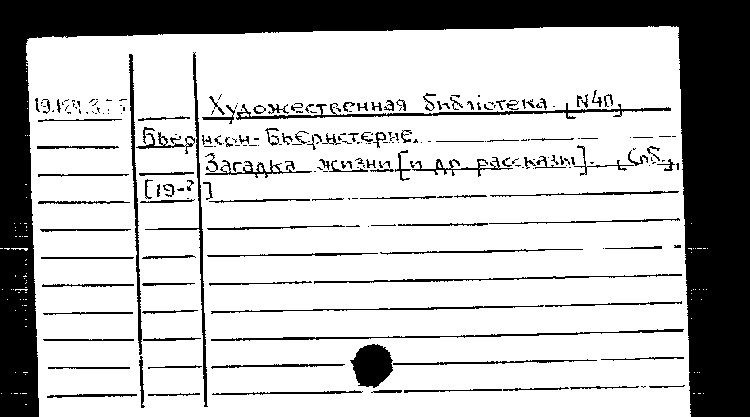 Художественная библіотека. [N40]
Бьернсон-Бьернстерне.
Загадка жизни [и др. рассказы]. [Спб.],
[19-?]